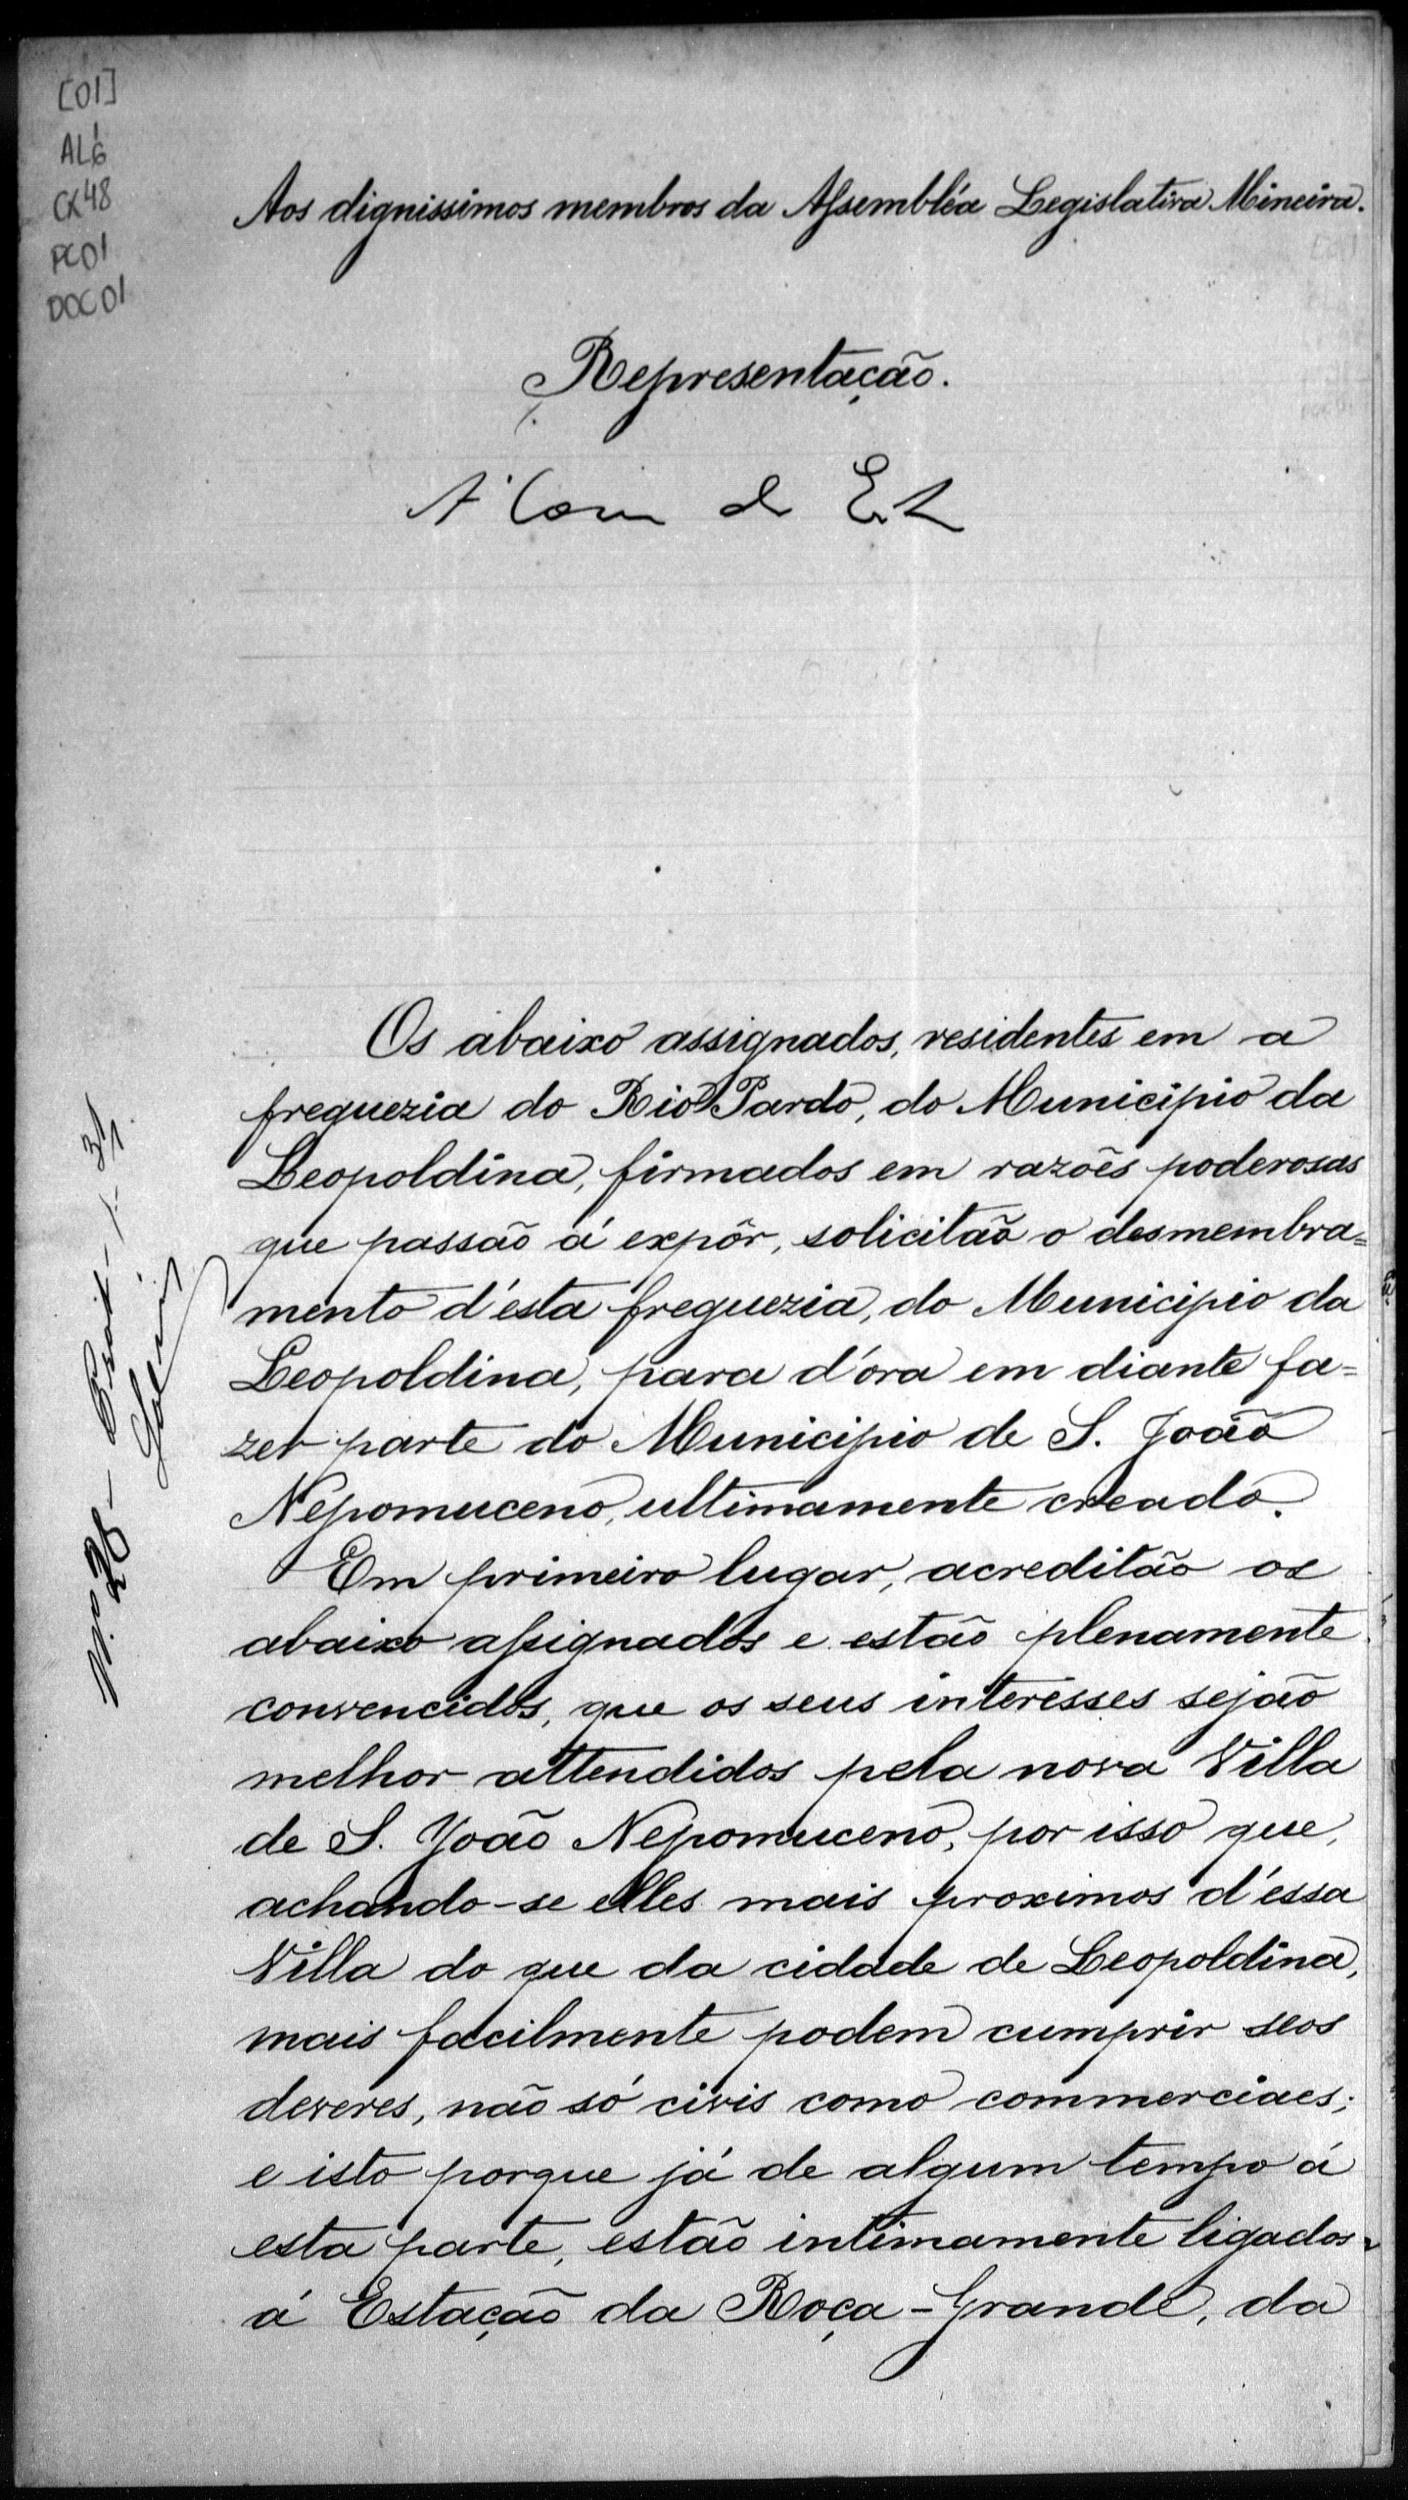 [01]
AL6
CX48
PC01
DOC01
Aos dignissimos membros da Assembléa Legislativa Mineira.
Representação.
A' Com de
Os abaixo assignados, residentes em a
freguezia do Rio Pardo, do Municipio da
Leopoldina, firmados em razões poderosas
que passão á expôr, solicitão o desmembra=
mento d'esta freguezia, do Municipio da
Leopoldina, para d'óra em diante fa=
zer parte do Municipio de S. João
Nepomuceno, ultimamente creado.
Em primeiro lugar, acreditão os
abaixo assignados e estão plenamente
convencidos, que os seus interesses sejão
melhor attendidos pela nova Villa
de S. João Nepomuceno, por isso que,
achando-se elles mais proximos d'essa
Villa do que da cidade de Leopoldina,
mais facilmente podem cumprir seos
deveres, não só civis como commerciaes;
e isto porque já de algum tempo á
esta parte, estão intimamente ligados
á Estação da Roça-Grande, da